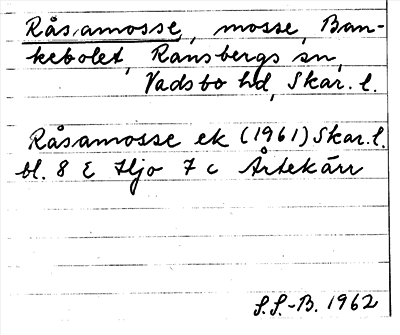 Råsamosse, mosse, Ban-
kebolet, Ransbergs sn,
Vadsbo hd, Skar. l.
Råsamosse ek (1961) Skar. l.
bl. 8 E Hjo 7 c Årtekärr
S.S.-B. 1962